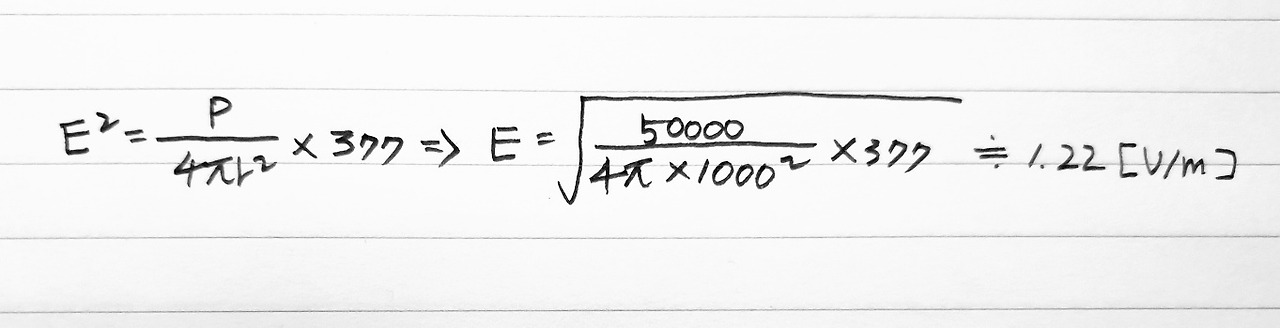 E² = P / 4πr² × 377 ⇒ E = √(50000 / 4π × 1000² × 377) ≒ 1.22 [V/m]